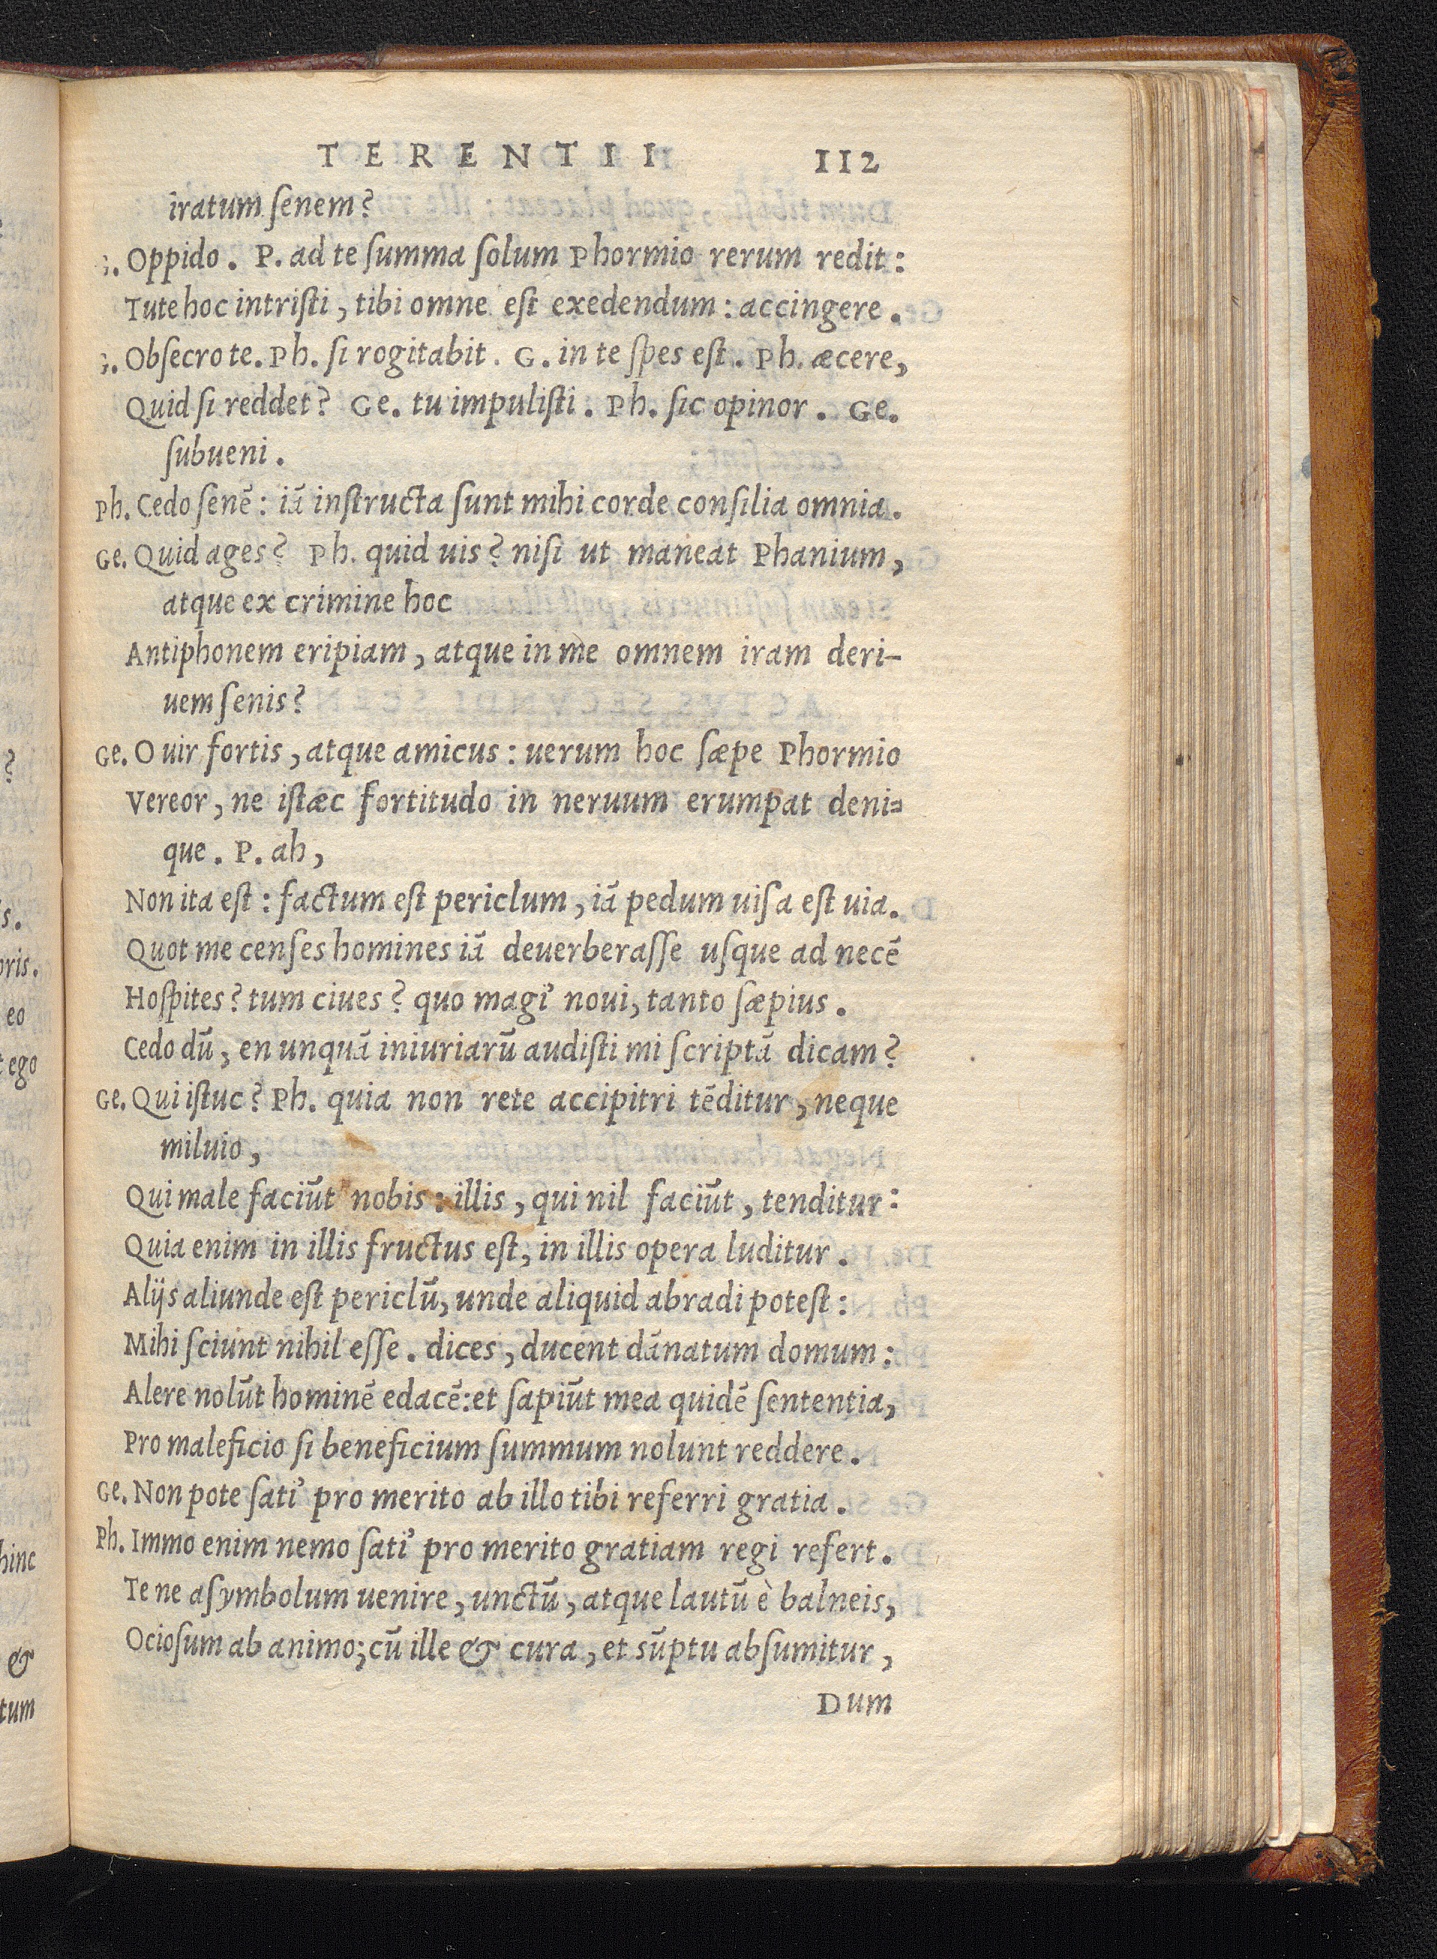 TERENTII 112
iratum ſenem?
G. Oppido. P. ad te ſumma ſolum Phormio rerum redit:
Tute hoc intriſti, tibi omne eſt exedendum: accingere.
G. Obſecro te. Ph. ſi rogitabit. G. in te ſpes eſt. Ph. æcere,
Quid ſi reddet? Ge. tu impuliſti. Ph. ſic opinor. Ge.
ſubueni.
Ph. Cedo ſenē: iā inſtructa ſunt mihi corde conſilia omnia.
Ge. Quid ages? Ph. quid uis? niſi ut maneat Phanium,
atque ex crimine hoc
Antiphonem eripiam, atque in me omnem iram deri-
uem ſenis?
Ge. O uir fortis, atque amicus: uerum hoc ſæpe Phormio
Vereor, ne iſtæc fortitudo in neruum erumpat deni=
que. P. ah,
Non ita eſt: factum eſt periclum, iā pedum uiſa eſt uia.
Quot me cenſes homines iā deuerberaſſe uſque ad necē
Hoſpites? tum ciues? quo magi' noui, tanto ſæpius.
Cedo dū, en unquā iniuriarū audiſti mi ſcriptā dicam?
Ge. Qui iſtuc? Ph. quia non rete accipitri tēditur, neque
miluio,
Qui male faciūt nobis: illis, qui nil faciūt, tenditur:
Quia enim in illis fructus eſt, in illis opera luditur.
Alijs aliunde eſt periclū, unde aliquid abradi poteſt:
Mihi ſciunt nihil eſſe. dices, ducent dānatum domum:
Alere nolūt hominē edacē: et ſapiūt mea quidē ſententia,
Pro maleficio ſi beneficium ſummum nolunt reddere.
Ge. Non pote ſati' pro merito ab illo tibi referri gratia.
Ph. Immo enim nemo ſati' pro merito gratiam regi refert.
Te ne aſymbolum uenire, unctū, atque lautū è balneis,
Ocioſum ab animo; cū ille & cura, et sūptu abſumitur,
Dum